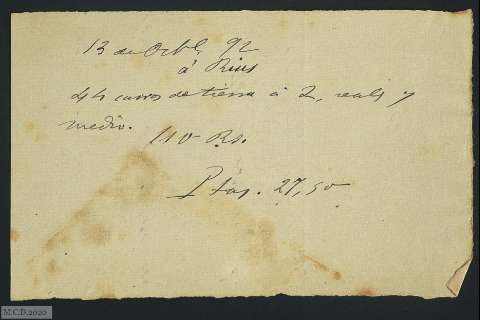 13 de Octb. 92
à Rius
44 carros de tierra à 2, reales y
medio.
110 Rs.
Ptas. 27,50
M.C.D.2020